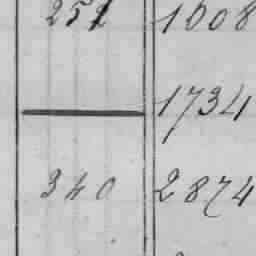 252 1608
— 1734
340 2874